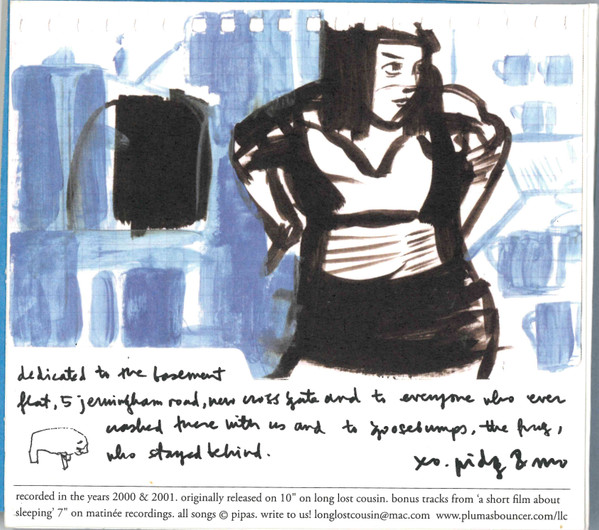 dedicated to the basement
flat, 5 jerningham road, new cross gate and to everyone who ever
crashed there with us and to goosebumps, the frog,
who stayed behind.
xo. pidg & mo
recorded in the years 2000 & 2001. originally released on 10” on long lost cousin. bonus tracks from ‘a short film about
sleeping’ 7” on matinée recordings. all songs © pipas. write to us! longlostcousin@mac.com www.plumasbouncer.com/llc